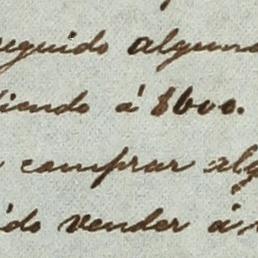 seguido alguna
diendo á $600.
comprar alg
ido vender á